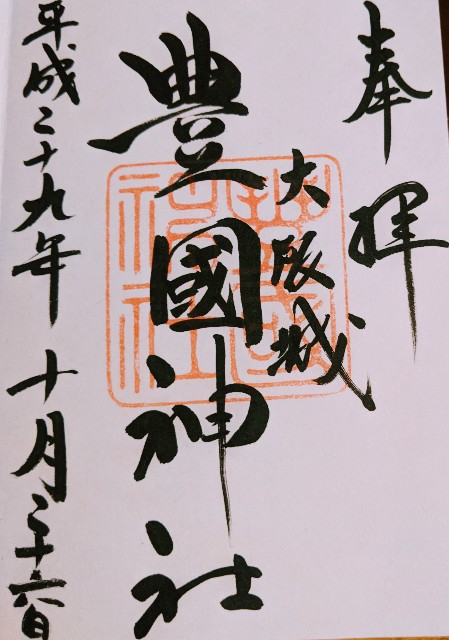 奉拝
大阪城
豊國神社
平成二十九年 十月二十六日